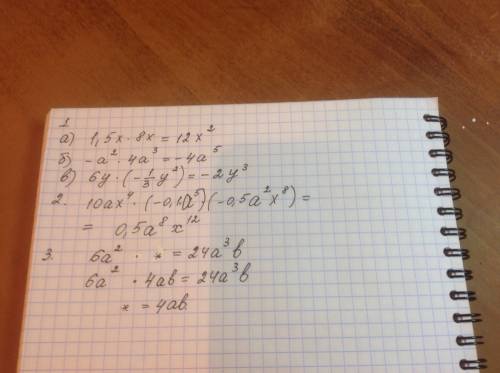 1
а) 1,5x · 8x = 12x²
б) -a² · 4a³ = -4a⁵
в) 6y · (-1/3 y²) = -2y³
2. 10ax⁴ · (-0,1a⁵)(-0,5a²x⁸) =
= 0,5a⁸x¹²
3. 6a² · * = 24a³b
6a² · 4ab = 24a³b
* = 4ab